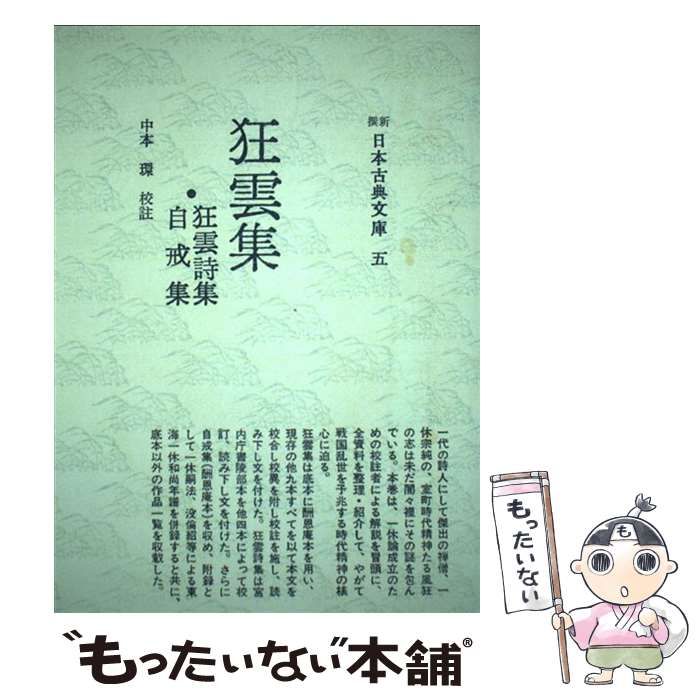 新撰 日本古典文庫 五
狂雲集
・狂雲詩集
自戒集
中本 環 校註
一代の詩人にして傑出の禅僧、一
休宗純の、室町時代精神たる風狂
の志は未だ闇々裡にその謎を包ん
でいる。本巻は、一休論成立のた
めの校註者による解説を冒頭に、
全資料を整理・紹介して、やがて
戦国乱世を予兆する時代精神の核
心に迫る。
狂雲集は底本に酬恩庵本を用い、
現存の他九本すべてを以て本文を
校合し校異を附し校註を施し、読
み下し文を付けた。狂雲詩集は宮
内庁書陵部本を他四本によって校
訂、読み下し文を付けた。さらに
自戒集(酬恩庵本)を収め、附録と
して一休嗣法、没倫紹等による東
海一休和尚年譜を併録すると共に、
底本以外の作品一覧を収載した。
もったいない
"もったいない"本舗